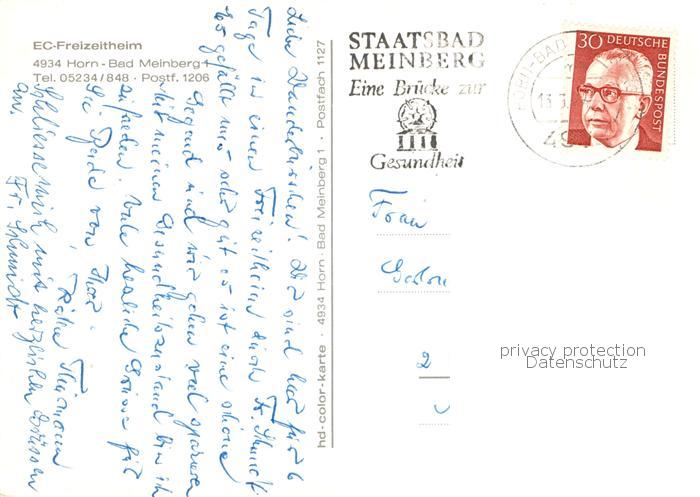 EC-Freizeitheim
4934 Horn - Bad Meinberg 1
Tel. 05234/848 · Postf. 1206
Tage in einem Freizeitheim durch Fr. Schmidt.
Es gefällt uns sehr gut es ist eine schöne
Gegend und wir gehen viel spazieren
Mit meinem Gesundheitszustand bin ich
zufrieden. Viele herzliche Grüsse für
Sie Beide von Ihrer
Schliesse mich mit herzlichen Grüssen
an. Fr. Schmidt
hd-color-karte · 4934 Horn · Bad Meinberg 1 · Postfach 1127
STAATSBAD
MEINBERG
Eine Brücke zur
Gesundheit
HORN-BAD
49
30 DEUTSCHE
BUNDESPOST
Frau
2
privacy protection
Datenschutz